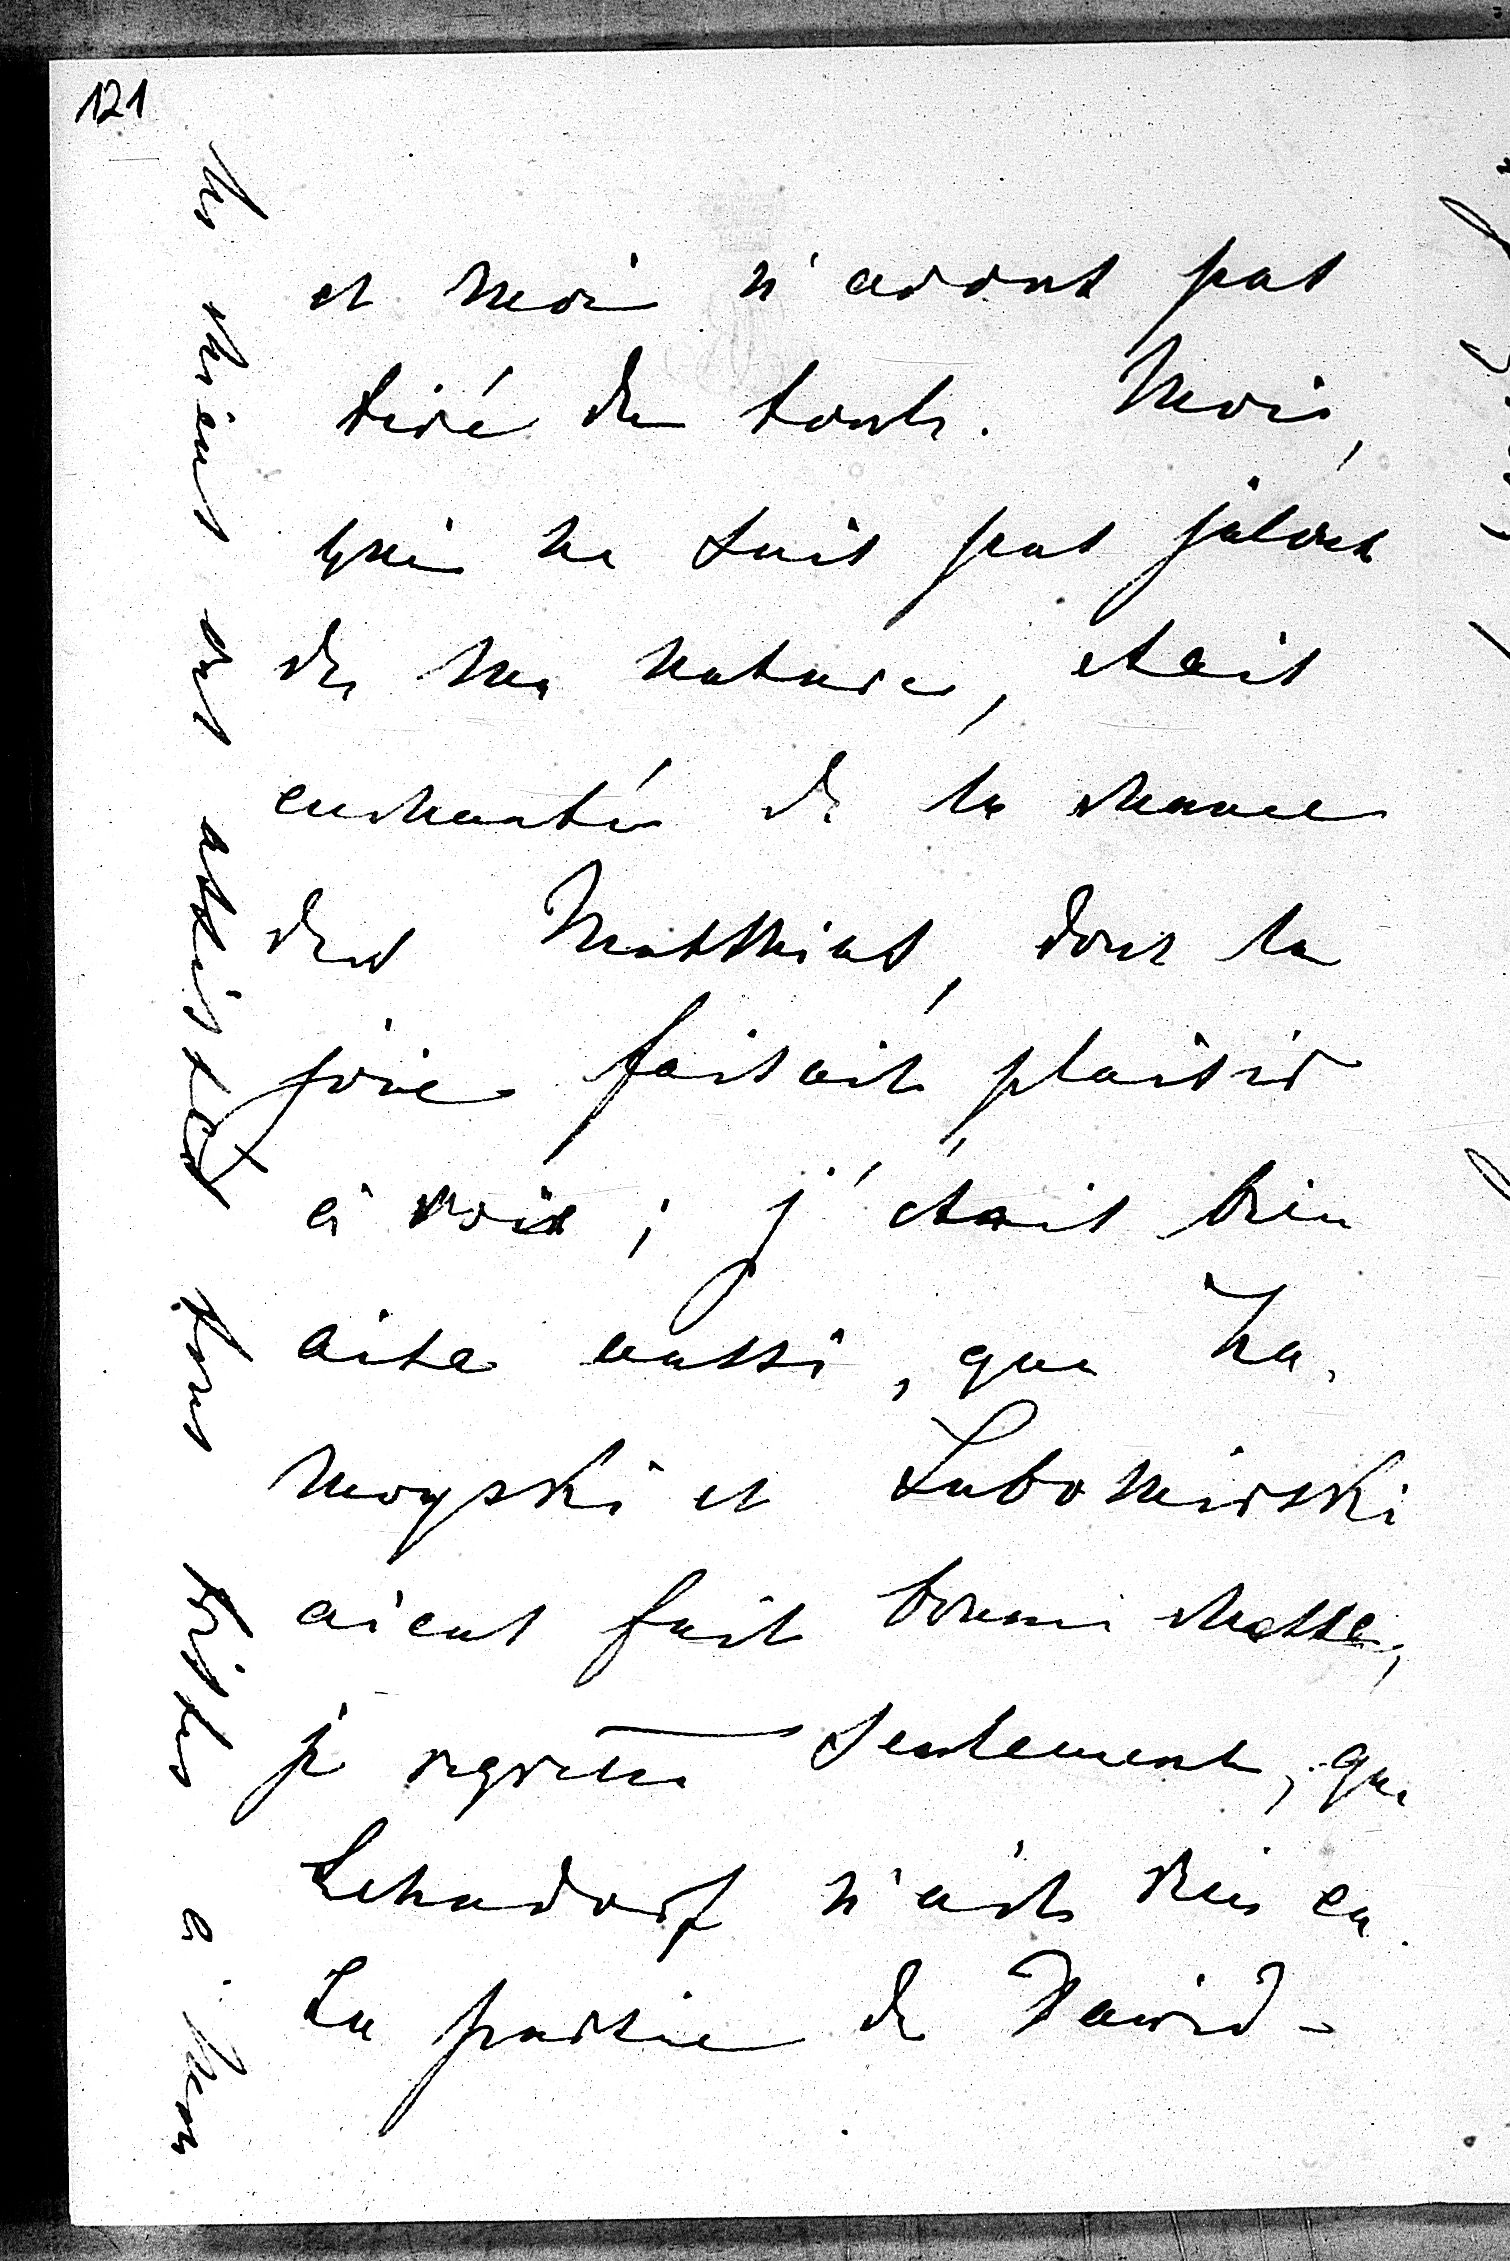 121
et moi n'avons pas
tiré du tout. Moi,
qui ne suis pas jaloux
de ma nature, etais
enchanté de la chance
des Matthias, dont la
joie faisait plaisir
à voir; j'étais bien
aise aussi, que Za,
moyski et Lubomirski
aient fait bonne chasse,
je regrette seulement, que
Lehndorf n'ait rien eu.
La partie de Dawid-
les chiens ont assisté
tous tristes a mon